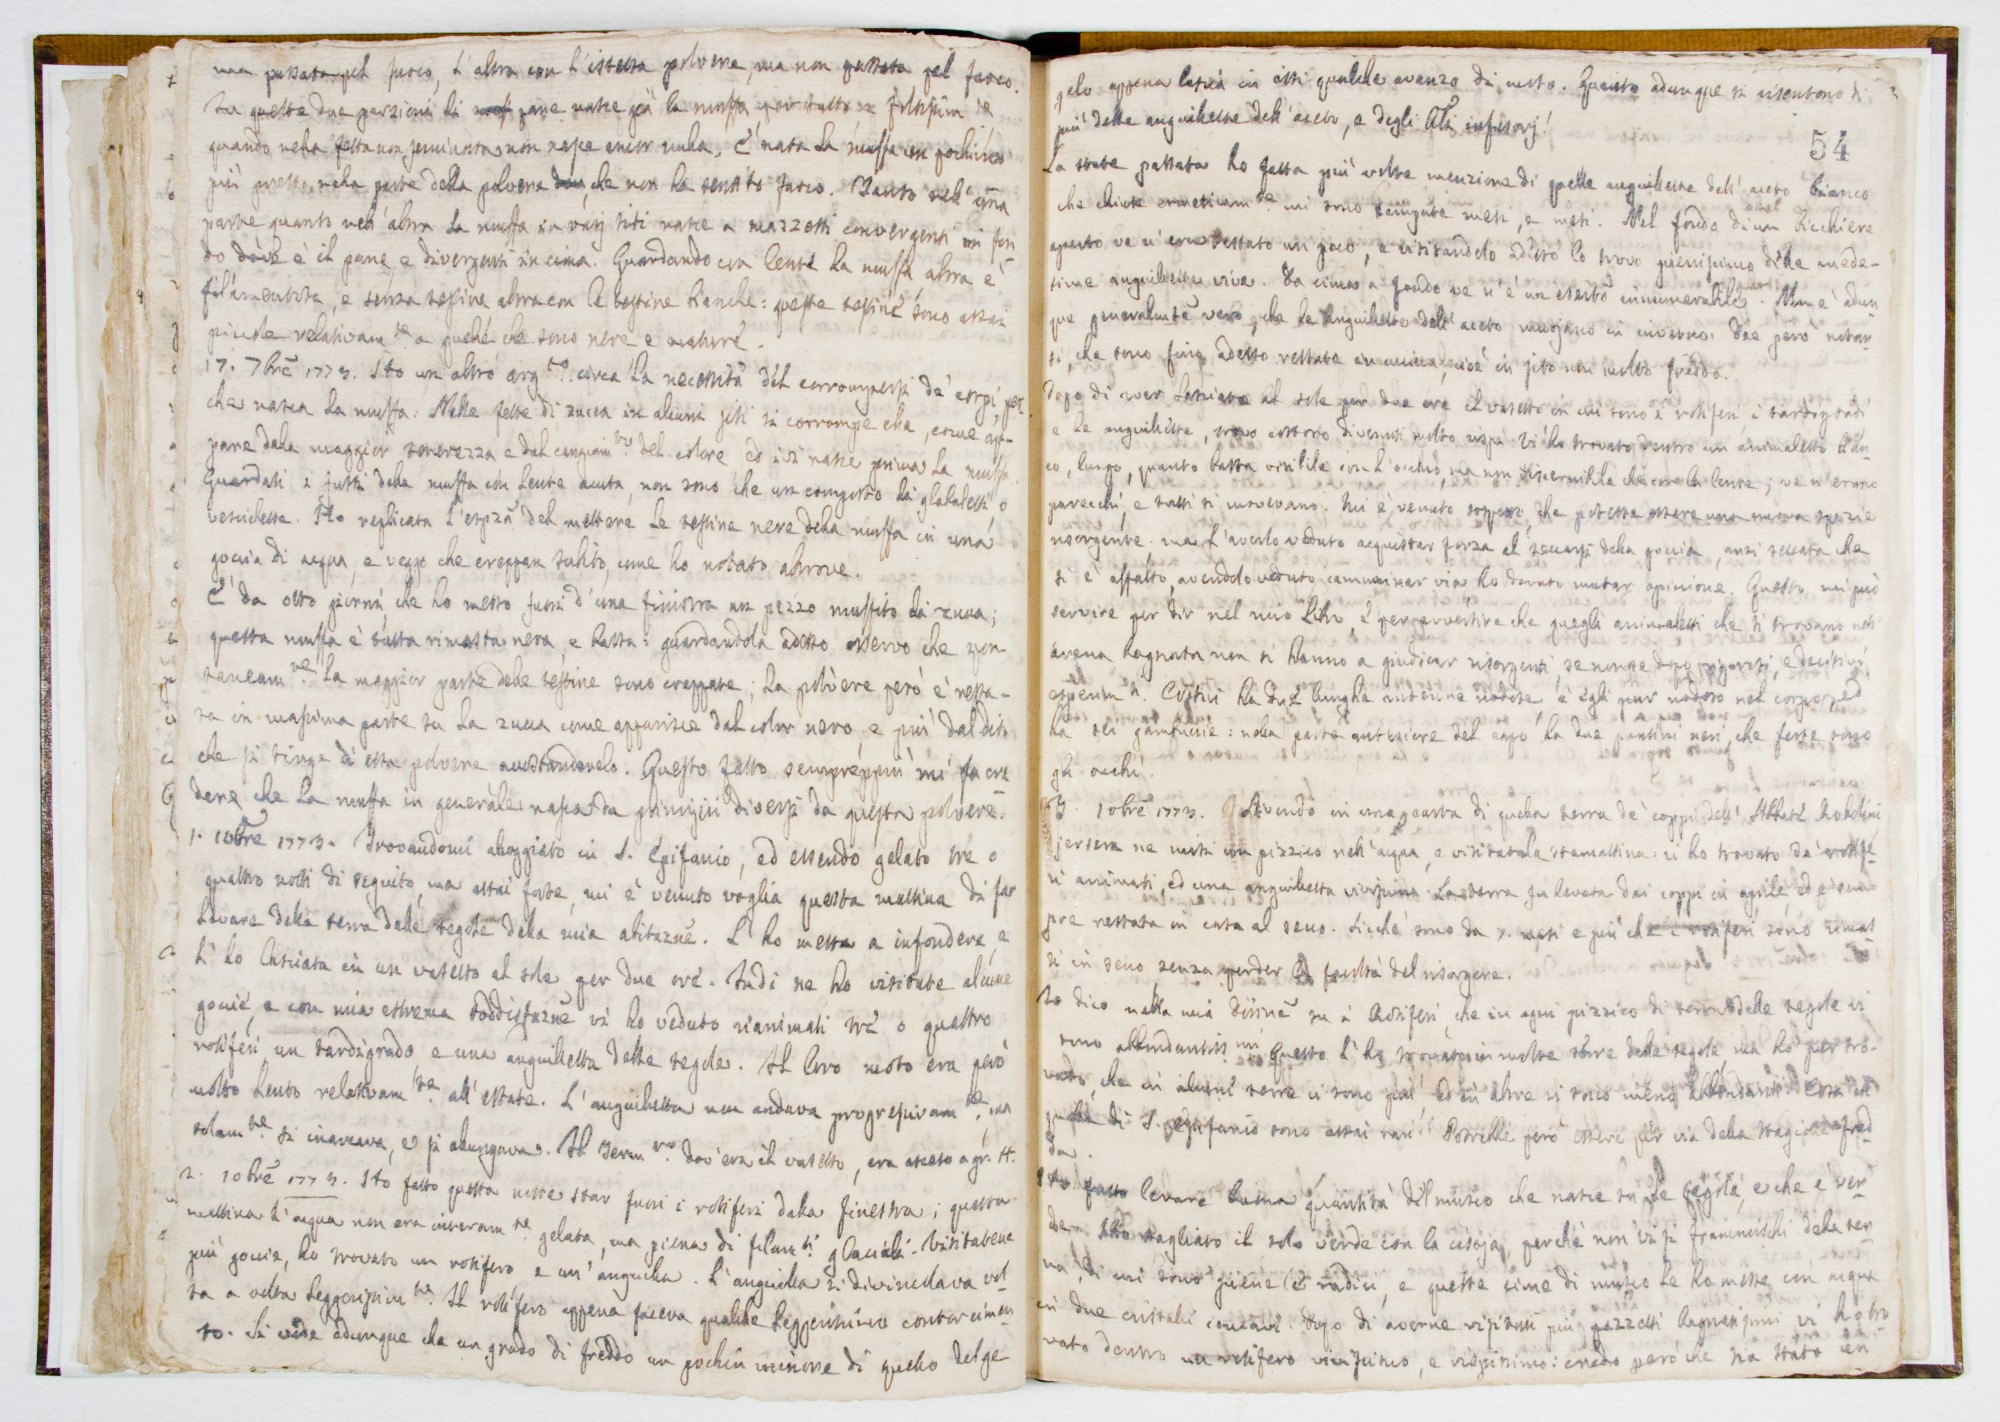 una passata pel fuoco, l'altra con l'istessa polvere, ma non passata pel fuoco.
Su queste due porzioni di pane nasce già la muffa per tutto
quando nella fetta non seminata non nasce ancor nulla. È nata la muffa un pochino
più presto nella parte della polvere che non ha sentito fuoco. Tanto nell'una
parte quanto nell'altra la muffa in varj siti nasce a mazzetti convergenti nel fon
do dov'è il pane e divergenti in cima. Guardando con lente la muffa, altra è
filamentosa, e senza testine, altra con le testine bianche: queste testine sono assai
picciole relativam.te a quelle che sono nere e mature.
17. 7bre 1773. Ho un altro arg.to circa la necessità del corrompersi de' corpi per
che nasca la muffa. Nelle fette di zucca in alcuni siti si corrompe ella, come ap-
pare dalla maggior tenerezza e dal cangiam.to del colore ed ivi nasce prima la muffa.
Guardati i fusti della muffa con lente acuta, non sono che un composto di globetti o
vescichette. Ho replicata l'esp.za del mettere le testine nere della muffa in una
goccia di acqua, e veggo che creppan subito, come ho notato altrove.
È da otto giorni che ho messo fuori d'una finestra un pezzo muffito di zucca;
questa muffa è tutta rimasta nera, e bassa: guardandola adesso osservo che spon
taneam.te la maggior parte delle testine sono creppate; la polvere però è resta-
ta in massima parte su la zucca come apparisce dal color nero, e più dal dito
che si tinge di essa polvere accostandovelo. Questo fatto sempreppiù mi fa cre
dere che la muffa in generale nasca da principii diversi da questa polvere.
1. 10bre 1773. Trovandomi alloggiato in S. Epifanio, ed essendo gelato tre o
quattro notti di seguito, ma assai forte, mi è venuto voglia questa mattina di far
levare della terra dalle tegole della mia abitazne. L'ho messa a infondere, e
l'ho lasciata in un vasetto al sole per due ore. Indi ne ho visitate alcune
goccie, e con mia estrema soddisfazne vi ho veduto rianimati tre o quattro
rotiferi, un tardigrado e una anguilletta delle tegole. Il loro moto era però
molto lento relativam.te all'estate. L'anguilletta non andava progressivam.te, ma
solam.te si inarcava, e si allungava. Il term.ro dov'era il vasetto, era asceso a gr. 4.
2. 10bre 1773. Ho fatto questa notte star fuori i rotiferi dalla finestra; questa
mattina l'acqua non era interam.te gelata, ma piena di filam.ti glaciali. Visitatene
più goccie, ho trovato un rotifero e un'anguilla. L'anguilla si divincolava vol
ta a volta leggerissim.te. Il rotifero appena faceva qualche leggerissimo contorcimen
to. Si vede adunque che un grado di freddo un pochin minore di quello del ge-
gelo appena lascia in essi qualche avanzo di moto. Quanto adunque si risentono di
più delle anguillette dell'aceto, e degli Ali infusorj!
54
La state passata ho fatta più volte menzione di quelle anguillette dell'aceto bianco
che chiuse ermeticam.te mi sono campate mesi, e mesi. Nel fondo di un bicchiere
aperto ve n'era restato un poco, e visitandolo adesso lo trovo pienissimo delle mede-
sime anguillette vive. Da cima a fondo ve n'è un esercito innumerabile. Non è adun
que generalmente vero, che le anguillette dell'aceto muojano in inverno. Dee però notar
si, che sono fino adesso restate in cucina, cioè in sito non molto freddo.
Dopo di aver lasciato al sole per due ore il vasetto in cui sono i rotiferi, i tardigradi
e le anguillette, trovo essere divenuti molto vispi. Vi ho trovato dentro un animaletto bian
co, lungo, quanto basta visibile con l'occhio, ma non discernibile che con la lente; ve n'erano
parecchi, e tutti si movevano. Mi è venuto sospetto che potesse essere una nuova spezie
risorgente, ma l'averlo veduto acquistar forza al seccarsi della goccia, anzi seccata che
si è affatto, avendolo veduto camminar via ho dovuto mutar opinione. Questo mi può
servire per dir nel mio Libro, e per avvertire che quegli animaletti che si trovano nell'
arena bagnata non si hanno a giudicar risorgenti, se non se dopo rigorosi, e decisivi
esperim.ti. Costui ha due lunghe antenne nodose e egli pur nodoso nel corpo, ed
ha sei gambuccie: nella parte anteriore del capo ha due puntini neri che forse sono
gli occhi.
3. 10bre 1773. Avendo in una carta di quella terra de' coppi dell'Abbate Robolini
jersera ne misi un pizzico nell'acqua, e visitatala stamattina vi ho trovato de' rotife
ri animati, ed una anguilletta vivissima. La terra fu levata dai coppi in aprile, ed è sem
pre restata in casa al secco. Sicchè sono da 7. mesi e più che i rotiferi sono rimas
ti in secco senza perder la facoltà del risorgere.
Io dico nella mia su i Rotiferi, che in ogni pizzico di terra delle tegole vi
sono abbondantissimi. Questo l'ho trovato in molte terre delle tegole ma ho pur tro-
vato, che in alcune terre vi sono più ed in altre vi sono meno abbondanti. Essi in
quella di S. Epifanio sono assai rari. Potrebbe però essere per via della stagione fred
da.
Ho fatto levare buona quantità del musco che nasce su le tegole, e che è ver
de. Ho tagliato il solo verde con la cesoja, perchè non vi si frammischi della ter
ra, di cui sono piene le radici, e queste cime di musco le ho messe con acqua
in due cristalli concavi. Dopo di averne visitati più pezzetti bagnatissimi vi ho tro
vato dentro un rotifero vivissimo, e vispissimo: credo però che sia stato in